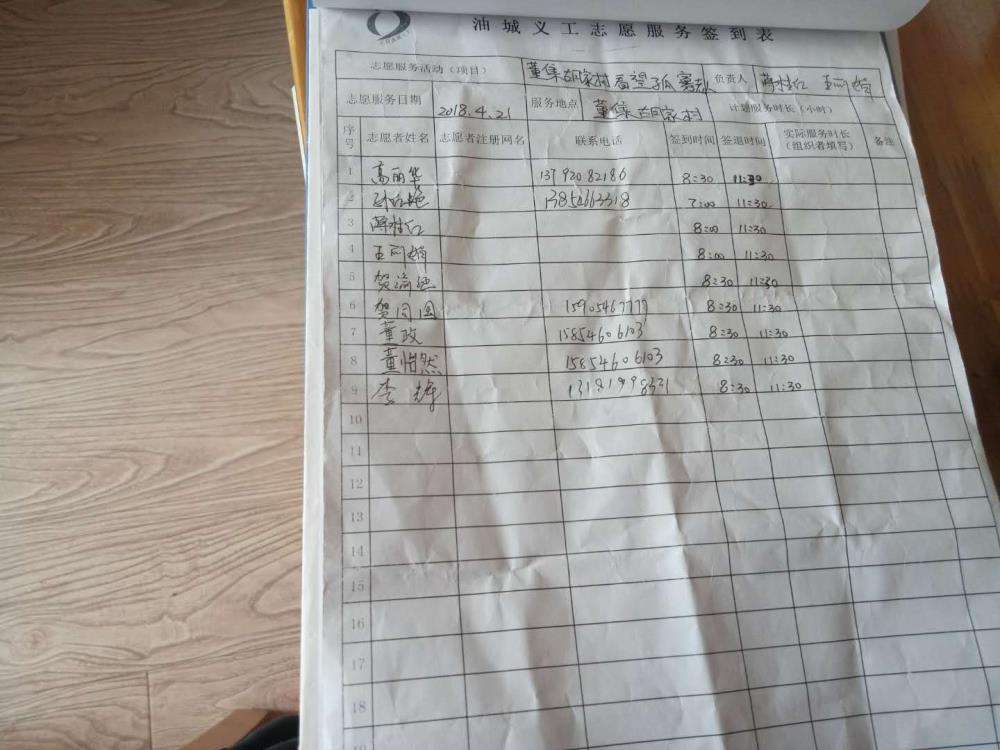 油城义工志愿服务签到表
志愿服务活动（项目） 董集胡家村看望孤寡老人 负责人 蒋桂红
志愿服务日期 2018.4.21 服务地点 董集胡家村 计划服务时长（小时）
序号 志愿者姓名 志愿者注册网名 联系电话 签到时间 签退时间 实际服务时长（组织者填写） 备注
1 高丽华 13792082186 8:30 11:30
2 13854663318 7:00 11:30
3 蒋桂红 8:00 11:30
4 8:00 11:30
5 8:30 11:30
6 贺同国 15905467777 8:30 11:30
7 董政 15854606103 8:30 11:30
8 董怡然 15854606103 8:30 11:30
9 李辉 13181998331 8:30 11:30
10
11
12
13
14
15
16
17
18